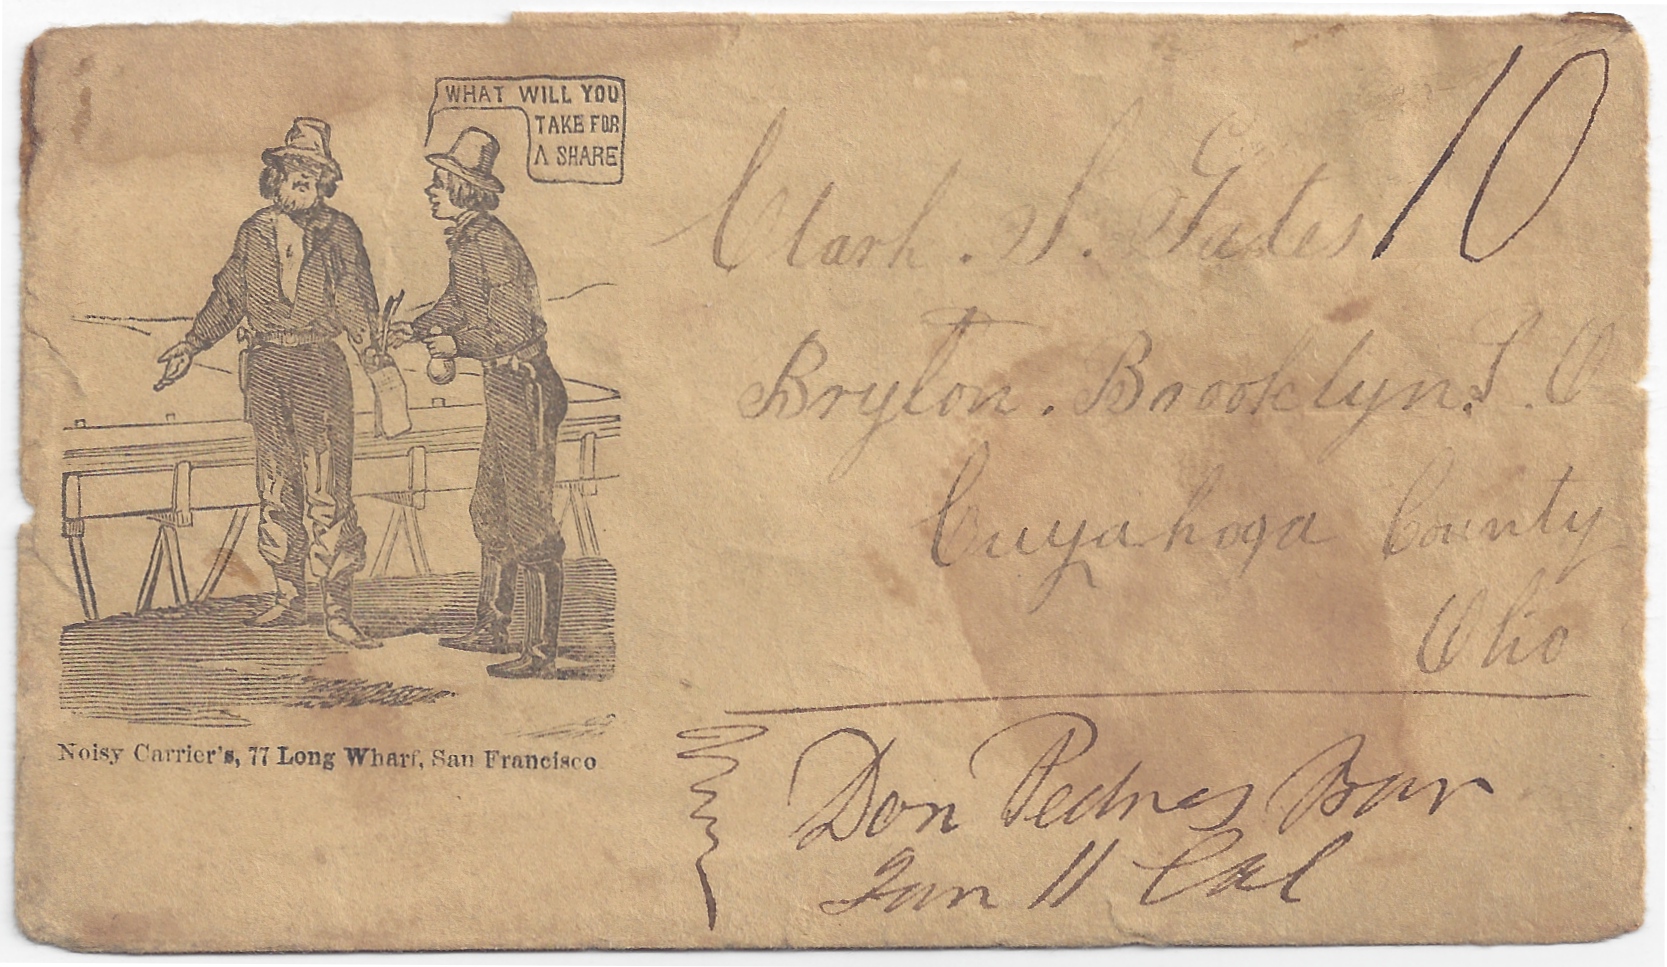 WHAT WILL YOU
TAKE FOR
A SHARE
10
Clark. S. Gates
Bryton. Brooklyn. P. O
Cuyahoga County
Ohio
Noisy Carrier's, 77 Long Wharf, San Francisco
Don Pedros Bar
Jan 11 Cal